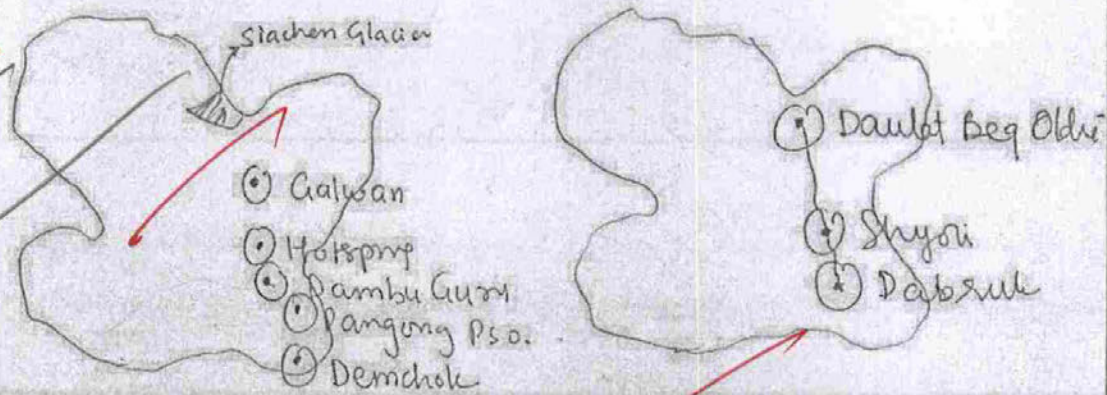 Siachen Glacier
Galwan
Hotspring
Pangong Pso.
Demchok
Daulat Beg Oldi
Shyori
Dabruk